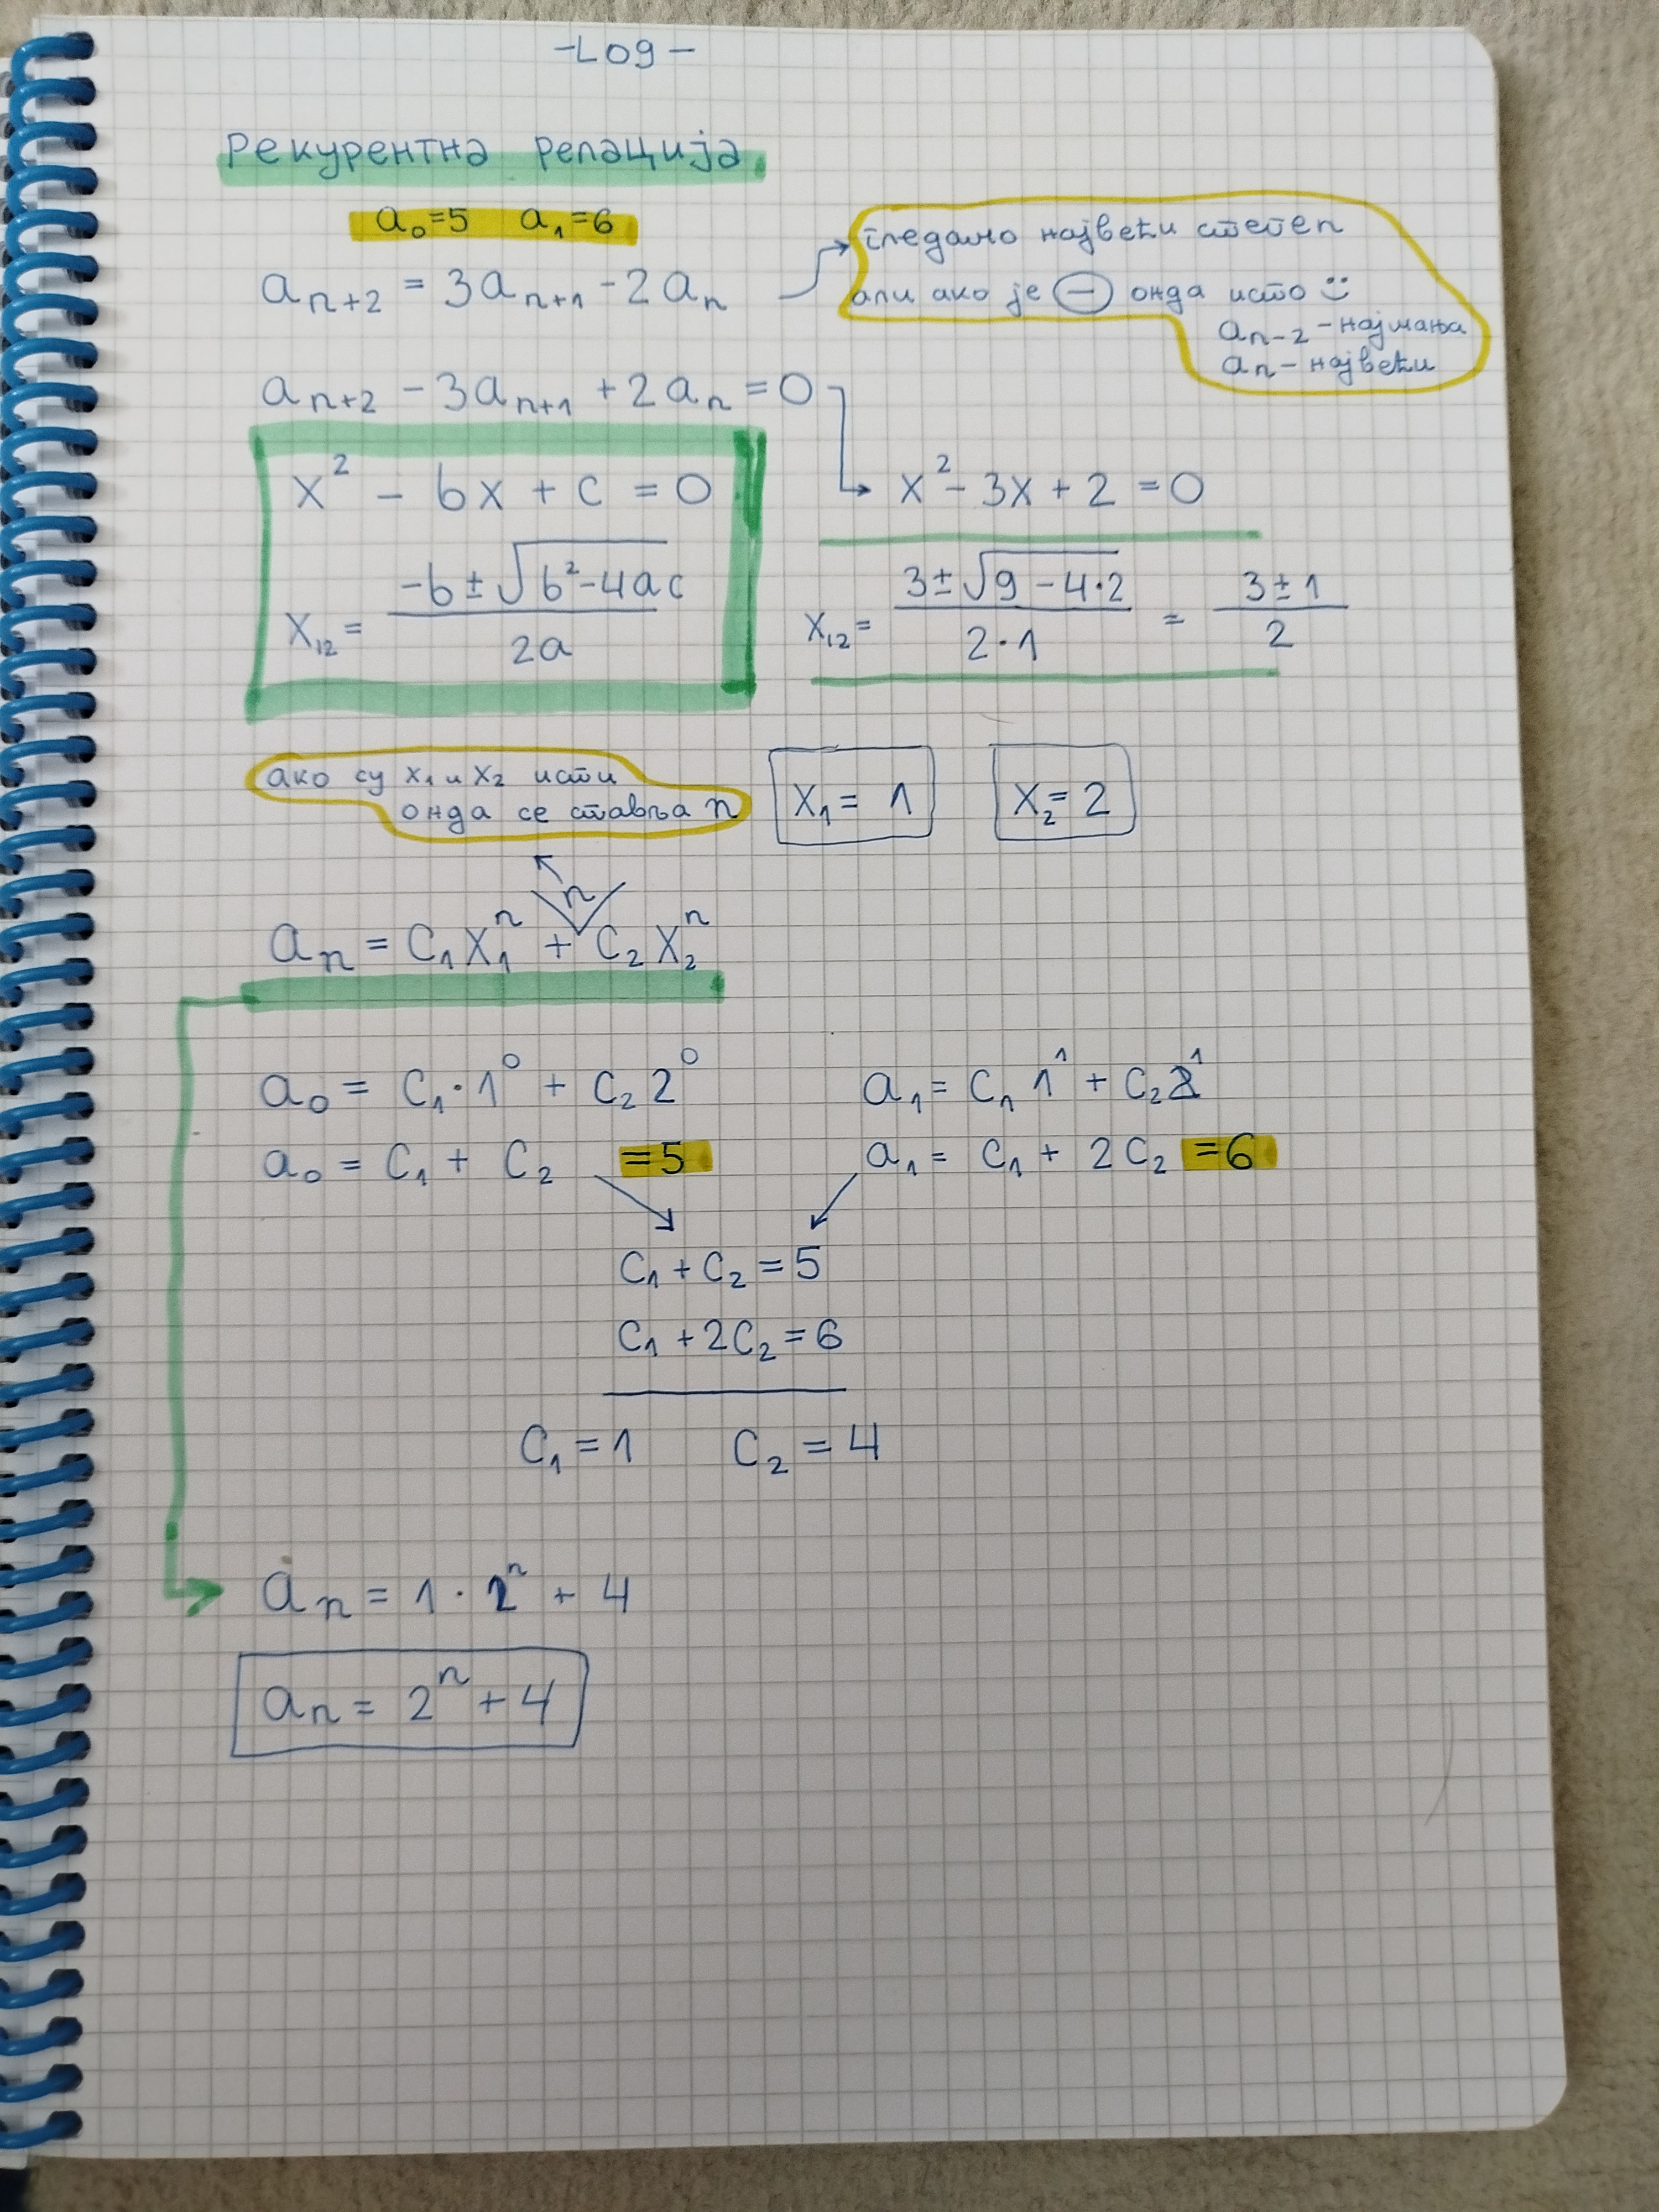 -LO9-
Рекурентна релација
a₀=5 a₁=6
aₙ₊₂ = 3aₙ₊₁ - 2aₙ
гледамо највећи степен
али ако је ⊖ онда исто :)
aₙ₋₂ - најмања
aₙ - највећи
aₙ₊₂ - 3aₙ₊₁ + 2aₙ = 0
x² - bx + c = 0
x² - 3x + 2 = 0
x₁₂ = (-b ± √(b²-4ac)) / 2a
x₁₂ = (3 ± √(9-4·2)) / (2·1) = (3±1) / 2
ако су x₁ и x₂ исти
онда се ставља n
x₁ = 1
x₂ = 2
n
aₙ = C₁x₁ⁿ + C₂x₂ⁿ
a₀ = C₁·1⁰ + C₂2⁰
a₁ = C₁1¹ + C₂2¹
a₀ = C₁ + C₂ = 5
a₁ = C₁ + 2C₂ = 6
C₁ + C₂ = 5
C₁ + 2C₂ = 6
C₁ = 1 C₂ = 4
aₙ = 1 · 2ⁿ + 4
aₙ = 2ⁿ + 4